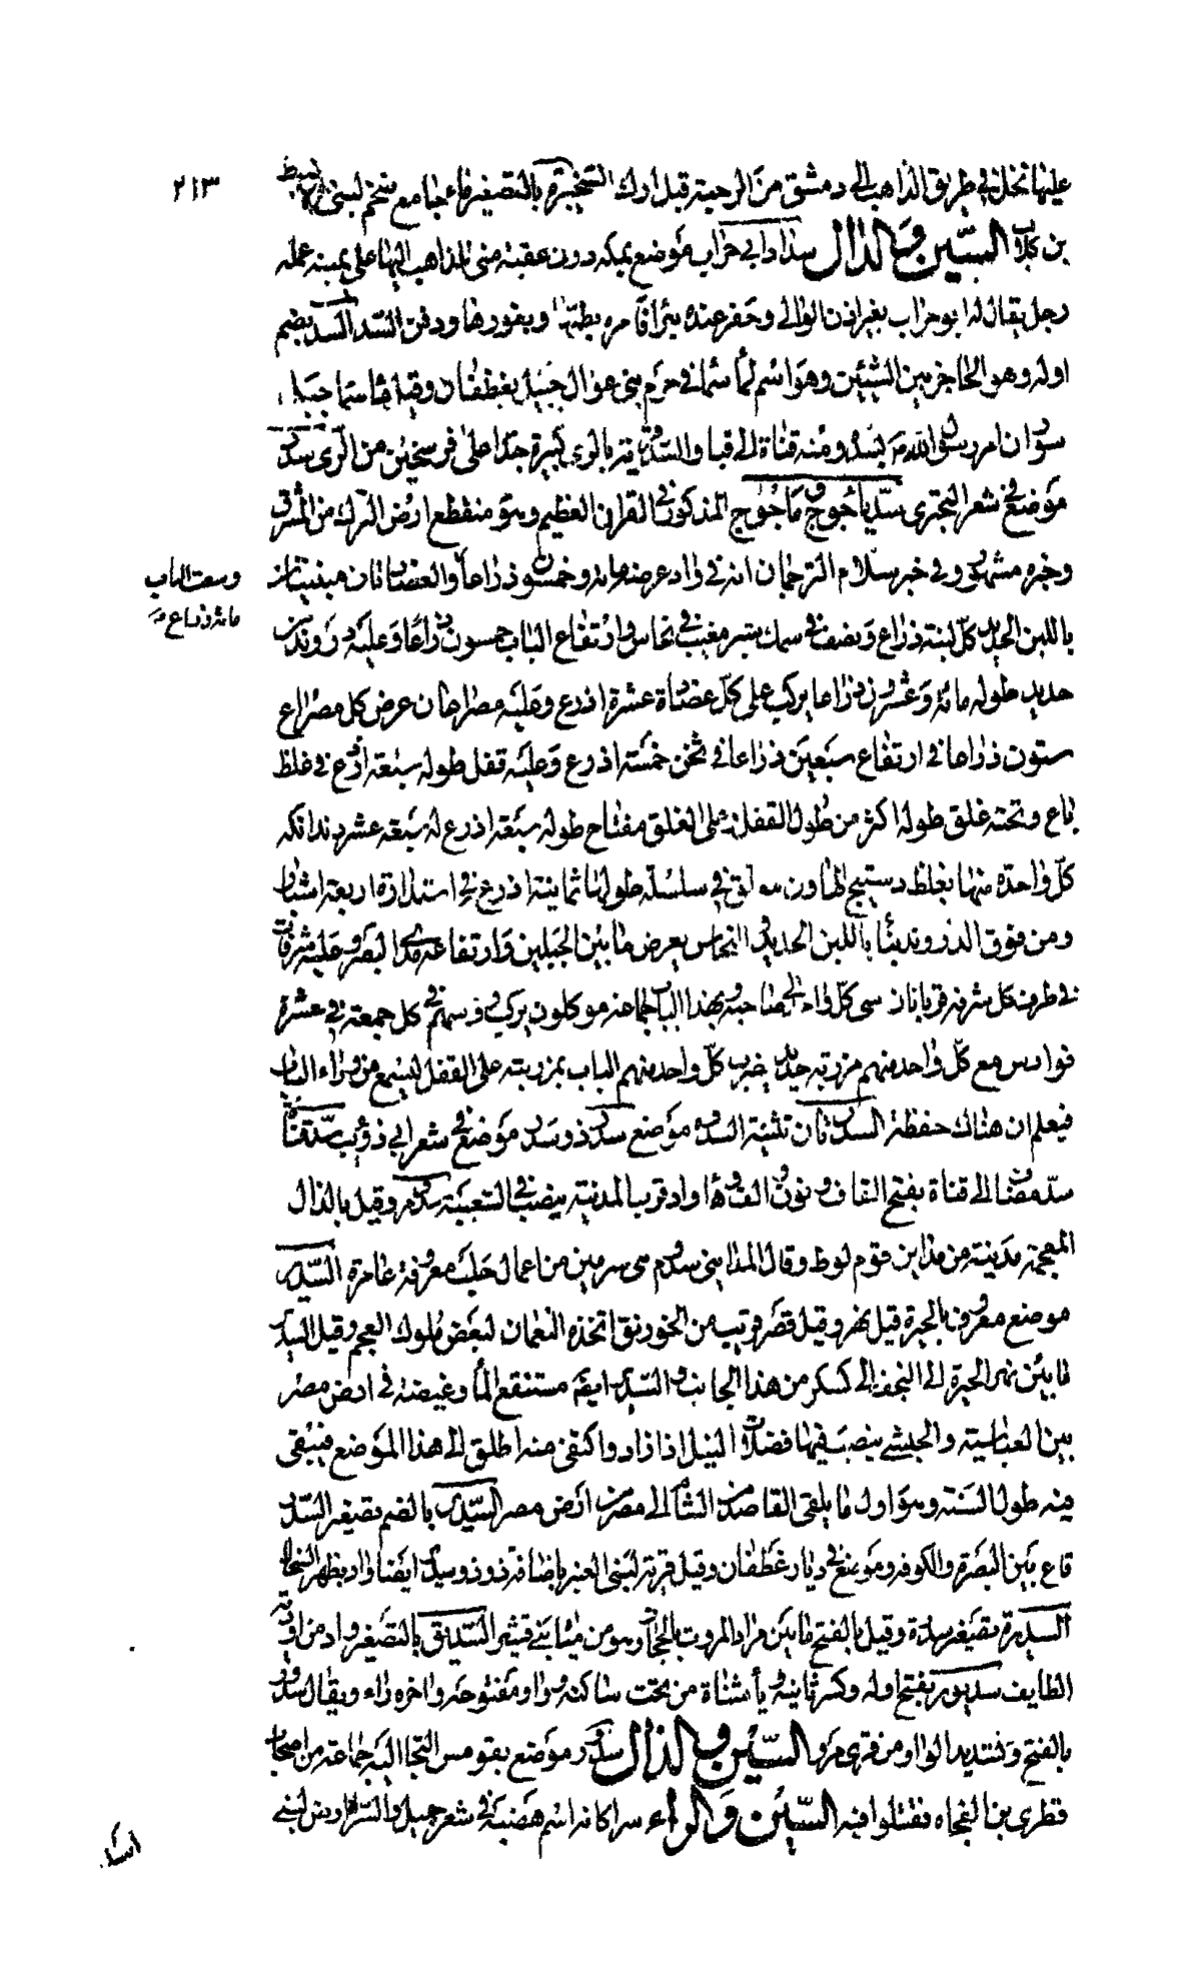 ٢١٣
عليها نخل في طريق الذاهب الى دمشق من الرحبة قبل ارك السخيبرة بالتصغير ماء جامع ضخم لبني الاضبط
بن كلاب السّين والدال سداد ابي جراب موضع بمكة دون عقبة منى للذاهب اليها على يمينه عمله
رجل يقال له ابو جراب بغير اذن الوالي وحفر عنده بئرا فامره بطمّها وبغورها ودفن السّد السد بضم
اوله وهو الحاجز بين الشيئين وهو اسم لماء سماء في حزم بني عوال جبيل بغطفان وقيل ماء سماء جبل
سوان امر رسول الله بسدّه ومنه قناة الى قبا والسد قرية بالري كبيرة جدا على فرسخين من الري سد
موضع في شعر البحتري سدّ ياجوج وماجوج المذكور في القران العظيم وهو منقطع ارض الترك من المشرق
وخبره مشهور وفي خبر سلام الترجمان انه في واد عرضه مائة وخمسون ذراعا والعضادتان مبنيتان
وسعت الباب
مائة ذراع
باللبن الحديد كل لبنة ذراع ونصف في سمك شبر مغيب في نحاس وارتفاع الباب خمسون ذراعا وعليه دروند
حديد طوله مائة وعشرون ذراعا يركب على كل عضادة عشرة اذرع وعليه مصراعان عرض كل مصراع
ستون ذراعا في ارتفاع سبعين ذراعا في ثخن خمسة اذرع وعليه قفل طوله سبعة اذرع في غلظ
باع وتحته غلق طوله اكثر من طول القفل على الغلق مفتاح طوله سبعة اذرع له سبعة عشر دندانكه
كل واحدة منها بغلظ دستيج الهاون معلق في سلسلة طولها ثمانية اذرع في استدارة اربعة اشبار
ومن فوق الدروند بناء باللبن الحديد في النحاس بعرض ما بين الجبلين وارتفاعه مدى البصر وعليه شرفات
في طرف كل شرفة قرنان سى كل واحد الى صاحبه وبهذا الباب جماعة موكلون يركب رئيسهم في كل جمعة في عشرة
فوارس مع كل واحد منهم مرزبة حديد يضرب كل واحد منهم الباب بمرزبته على القفل ليسمع من وراء الباب
فيعلم ان هناك حفظة السدان تثنية السد موضع سدد ذو سدد موضع في شعر ابي ذؤيب سد قناة
سد مضاف الى قناة بفتح القاف ونون والف وهاء واد قرب المدينة ينصب في الشعيبة سدوم وقيل بالذال
المعجمة مدينة من مداين قوم لوط وقال المدايني سدوم هي سرمين من اعمال حلب معروفة عامرة السدير
موضع معروف بالحيرة قيل نهر وقيل قصر قريب من الخورنق اتخذه النعمان لبعض ملوك العجم وقيل السدير
ما بين نهر الحيرة الى النجف الى كسكر من هذا الجانب والسدير ايضا مستنقع الماء وغيضة في ارض مصر
بين العباسية والخشبي ينصب فيها فضلات النيل اذا زاد واكتفى منه اطلق الى هذا الموضع فيبقى
فيه طول السنة وهو اول ما يلقى القاصد من الشام الى مصر من ارض مصر السدير بالضم تصغير السدر
قاع بين البصرة والكوفة وموضع في ديار غطفان وقيل قرية لبني العنبر باضافة ذو وذو سدير ايضا واد بظهر السخال
السديرة تصغير سدرة وقيل بالفتح ما بين جراد المروت بالحجاز وهو من مياه بني قشير السديق بالتصغير واد من اودية
الطايف سديور بفتح اوله وكسر ثانيه وياء مثناة من تحت ساكنة وواو مفتوحة واخره راء ويقال سدور
بالفتح وتشديد الواو من قرى مرو السّين والذال سذور موضع بقومس التجا اليه جماعة من اصحاب
قطري بن الفجاه فقتلوا فيه السّين والراء سرا كانه اسم هضبة في شعر جميل والسرا وض لبني
اسد